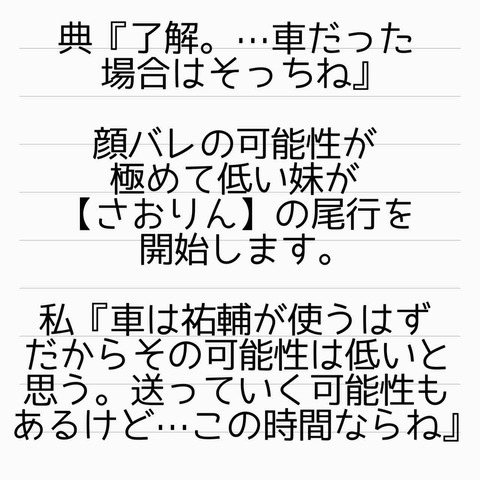 典『了解。…車だった
場合はそっちね』
顔バレの可能性が
極めて低い妹が
【さおりん】の尾行を
開始します。
私『車は祐輔が使うはず
だからその可能性は低いと
思う。送っていく可能性も
あるけど…この時間ならね』